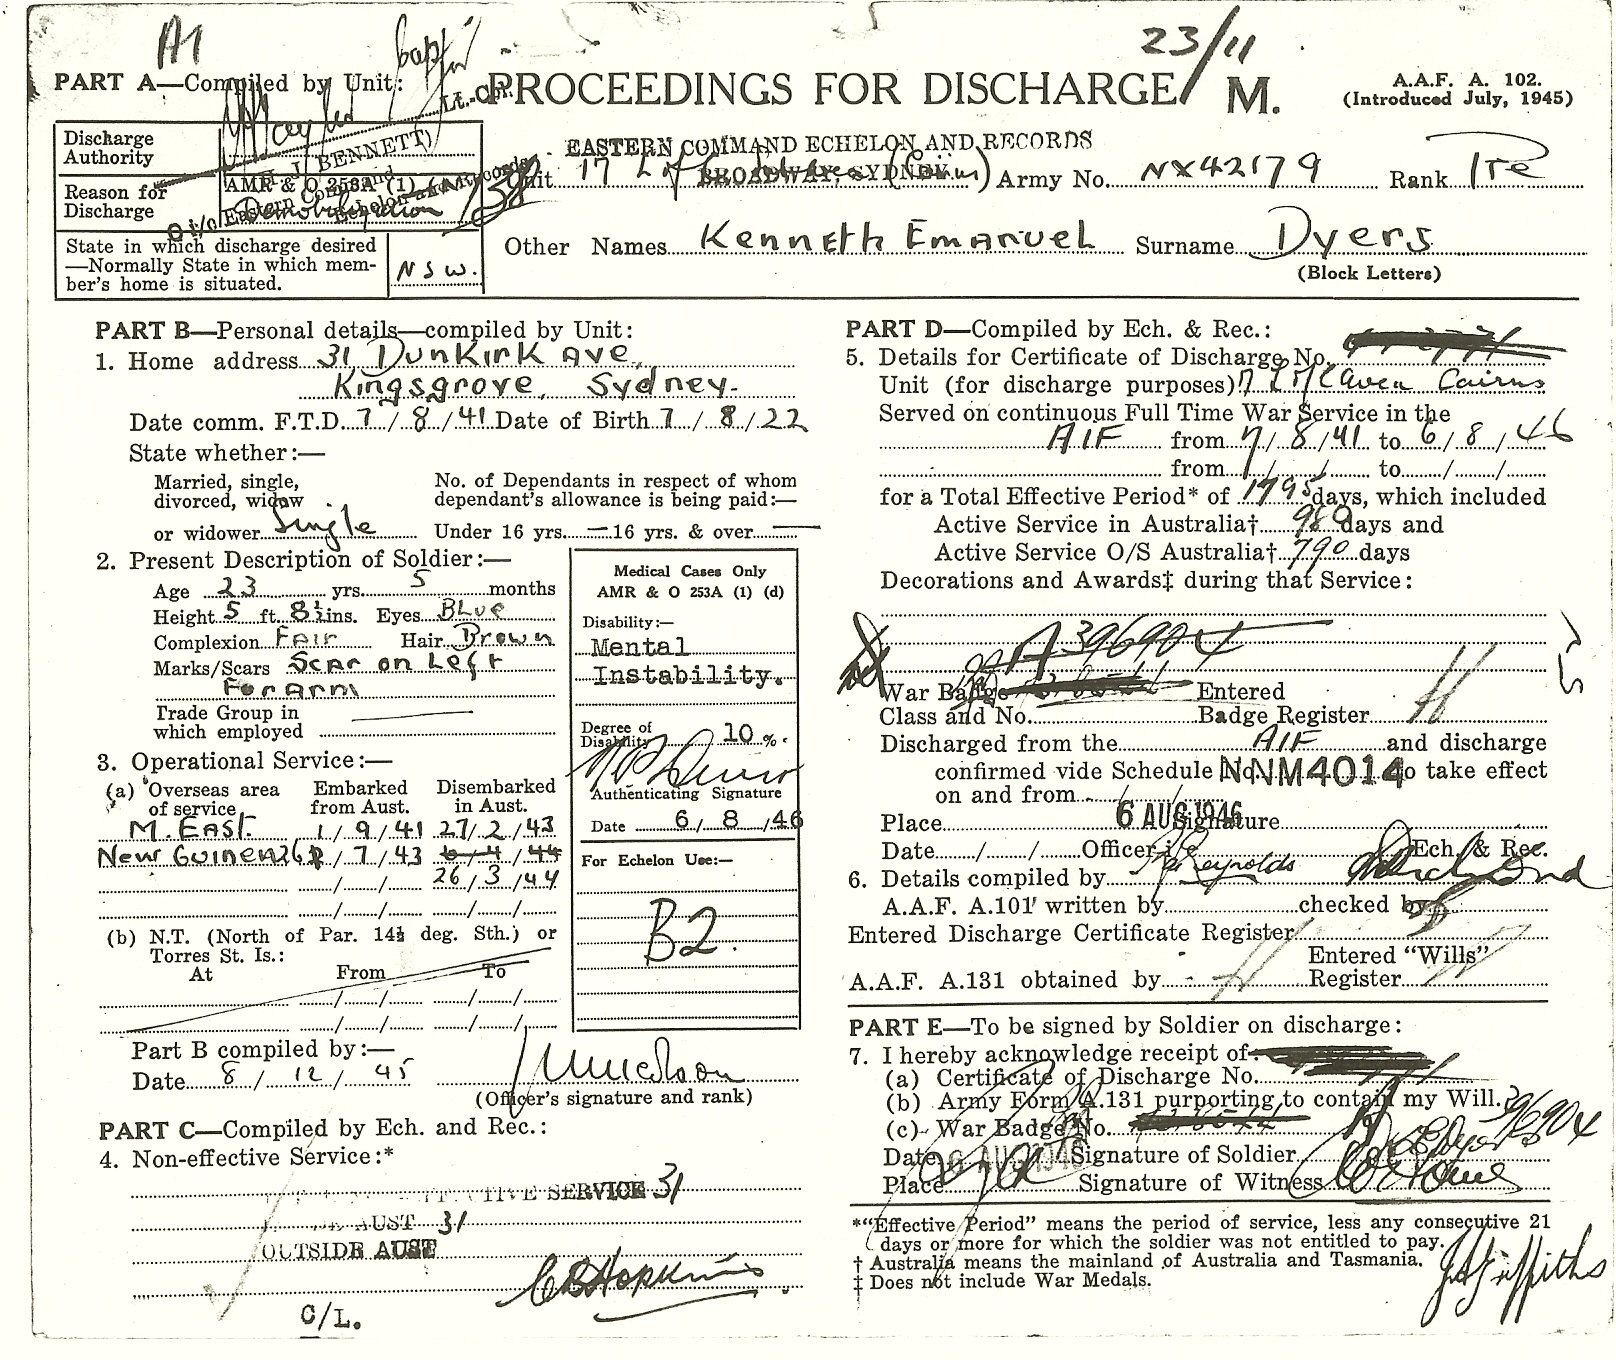 A1
23/11
PART A—Compiled by Unit:
Lt.-Col.
PROCEEDINGS FOR DISCHARGE
M.
A.A.F. A. 102.
(Introduced July, 1945)
Discharge Authority
J. BENNETT)
EASTERN COMMAND ECHELON AND RECORDS
BROADWAY, SYDNEY
Reason for Discharge
AMR & O 253A (1)
Demobilization
O i/c Eastern Command Echelon and Records
Unit 17 (Cairns) Army No. NX42179 Rank Pte
State in which discharge desired
—Normally State in which mem-
ber's home is situated.
NSW.
Other Names Kenneth Emanuel Surname Dyers
(Block Letters)
PART B—Personal details—compiled by Unit:
1. Home address 31 Dunkirk Ave,
Kingsgrove, Sydney.
Date comm. F.T.D. 7/8/41 Date of Birth 7/8/22
State whether:—
Married, single, divorced, widow or widower Single
No. of Dependants in respect of whom dependant's allowance is being paid:—
Under 16 yrs. — 16 yrs. & over —
2. Present Description of Soldier:—
Age 23 yrs. 5 months
Height 5 ft. 8½ ins. Eyes Blue
Complexion Fair Hair Brown
Marks/Scars Scar on Left
Forarm
Trade Group in
which employed
Medical Cases Only
AMR & O 253A (1) (d)
Disability:—
Mental
Instability.
Degree of
Disability 10 %.
Authenticating Signature
Date 6/8/46
For Echelon Use:—
B2.
3. Operational Service:—
(a) Overseas area of service Embarked from Aust. Disembarked in Aust.
M. East. 1/9/41 27/2/43
New Guinea 26/7/43 6/4/44
26/3/44
(b) N.T. (North of Par. 14½ deg. Sth.) or
Torres St. Is.:
At From To
Part B compiled by:—
Date 8/12/45
(Officer's signature and rank)
PART C—Compiled by Ech. and Rec.:
4. Non-effective Service:*
SERVICE 31
AUST 31
OUTSIDE AUST
C B Hopkins
C/L.
PART D—Compiled by Ech. & Rec.:
5. Details for Certificate of Discharge No.
Unit (for discharge purposes) Cairns
Served on continuous Full Time War Service in the
AIF from 7/8/41 to 6/8/46
from / / to / /
for a Total Effective Period* of 1795 days, which included
Active Service in Australia† 980 days and
Active Service O/S Australia† 790 days
Decorations and Awards‡ during that Service:
A396904
War Badge
Class and No.
Entered
Badge Register
Discharged from the AIF and discharge
confirmed vide Schedule No. NNM4014 to take effect
on and from / /
6 AUG 1946
Place Signature
Date / / Officer i/c Ech. & Rec.
6. Details compiled by Reynolds
A.A.F. A.101 written by checked by
Entered Discharge Certificate Register
Entered "Wills"
A.A.F. A.131 obtained by Register
PART E—To be signed by Soldier on discharge:
7. I hereby acknowledge receipt of:—
(a) Certificate of Discharge No.
(b) Army Form A.131 purporting to contain my Will.
(c) War Badge No. A396904
Date 6 AUG 1946 Signature of Soldier K E Dyers
Place Signature of Witness
*"Effective Period" means the period of service, less any consecutive 21
days or more for which the soldier was not entitled to pay.
† Australia means the mainland of Australia and Tasmania.
‡ Does not include War Medals.
Griffiths